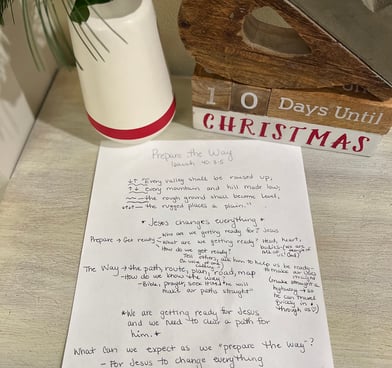 10 Days Until
CHRISTMAS
Prepare the Way
Isaiah 40:3-5
↓↑ "Every valley shall be raised up,
↑↓ every mountain and hill made low;
the rough ground shall become level,
the rugged places a plain."
* Jesus changes everything *
Who are we getting ready for? Jesus
Prepare → Get ready → What are we getting ready? Head, heart,
How do we get ready?
Tell others, ask Him to help us be ready
The Way → the path, route, plan, road, map
→ How do we know the way?
- Bible, prayer, seek
make our paths straight"
to make our
straight
(make straight a
highway) → so
he can travel
easily in +
through us
*We are getting ready for Jesus
and we need to clear a path for
him.*
What can we expect as we "prepare the way"?
- For Jesus to change everything